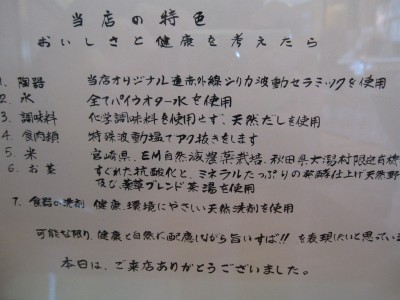 当店の特色
おいしさと健康を考えたら
1. 陶器 当店オリジナル遠赤外線シリカ波動セラミックを使用
2. 水 全てパイウオター水を使用
3. 調味料 化学調味料を使用せず、天然だしを使用
4 食肉類 特殊波動塩でアク抜きをします
5. 米 宮崎県、EM自然農薬栽培、秋田県大潟村限定有機
6. お茶 すぐれた抗酸化と、ミネラルたっぷりの発酵仕上げ天然野
及び、薬草ブレンド茶湯を使用
7. 食器の洗剤 健康、環境にやさしい天然洗剤を使用
可能な限り、健康と自然に配慮しながら旨いすば!! を表現したいと思ってい
本日は、ご来店ありがとうございました。